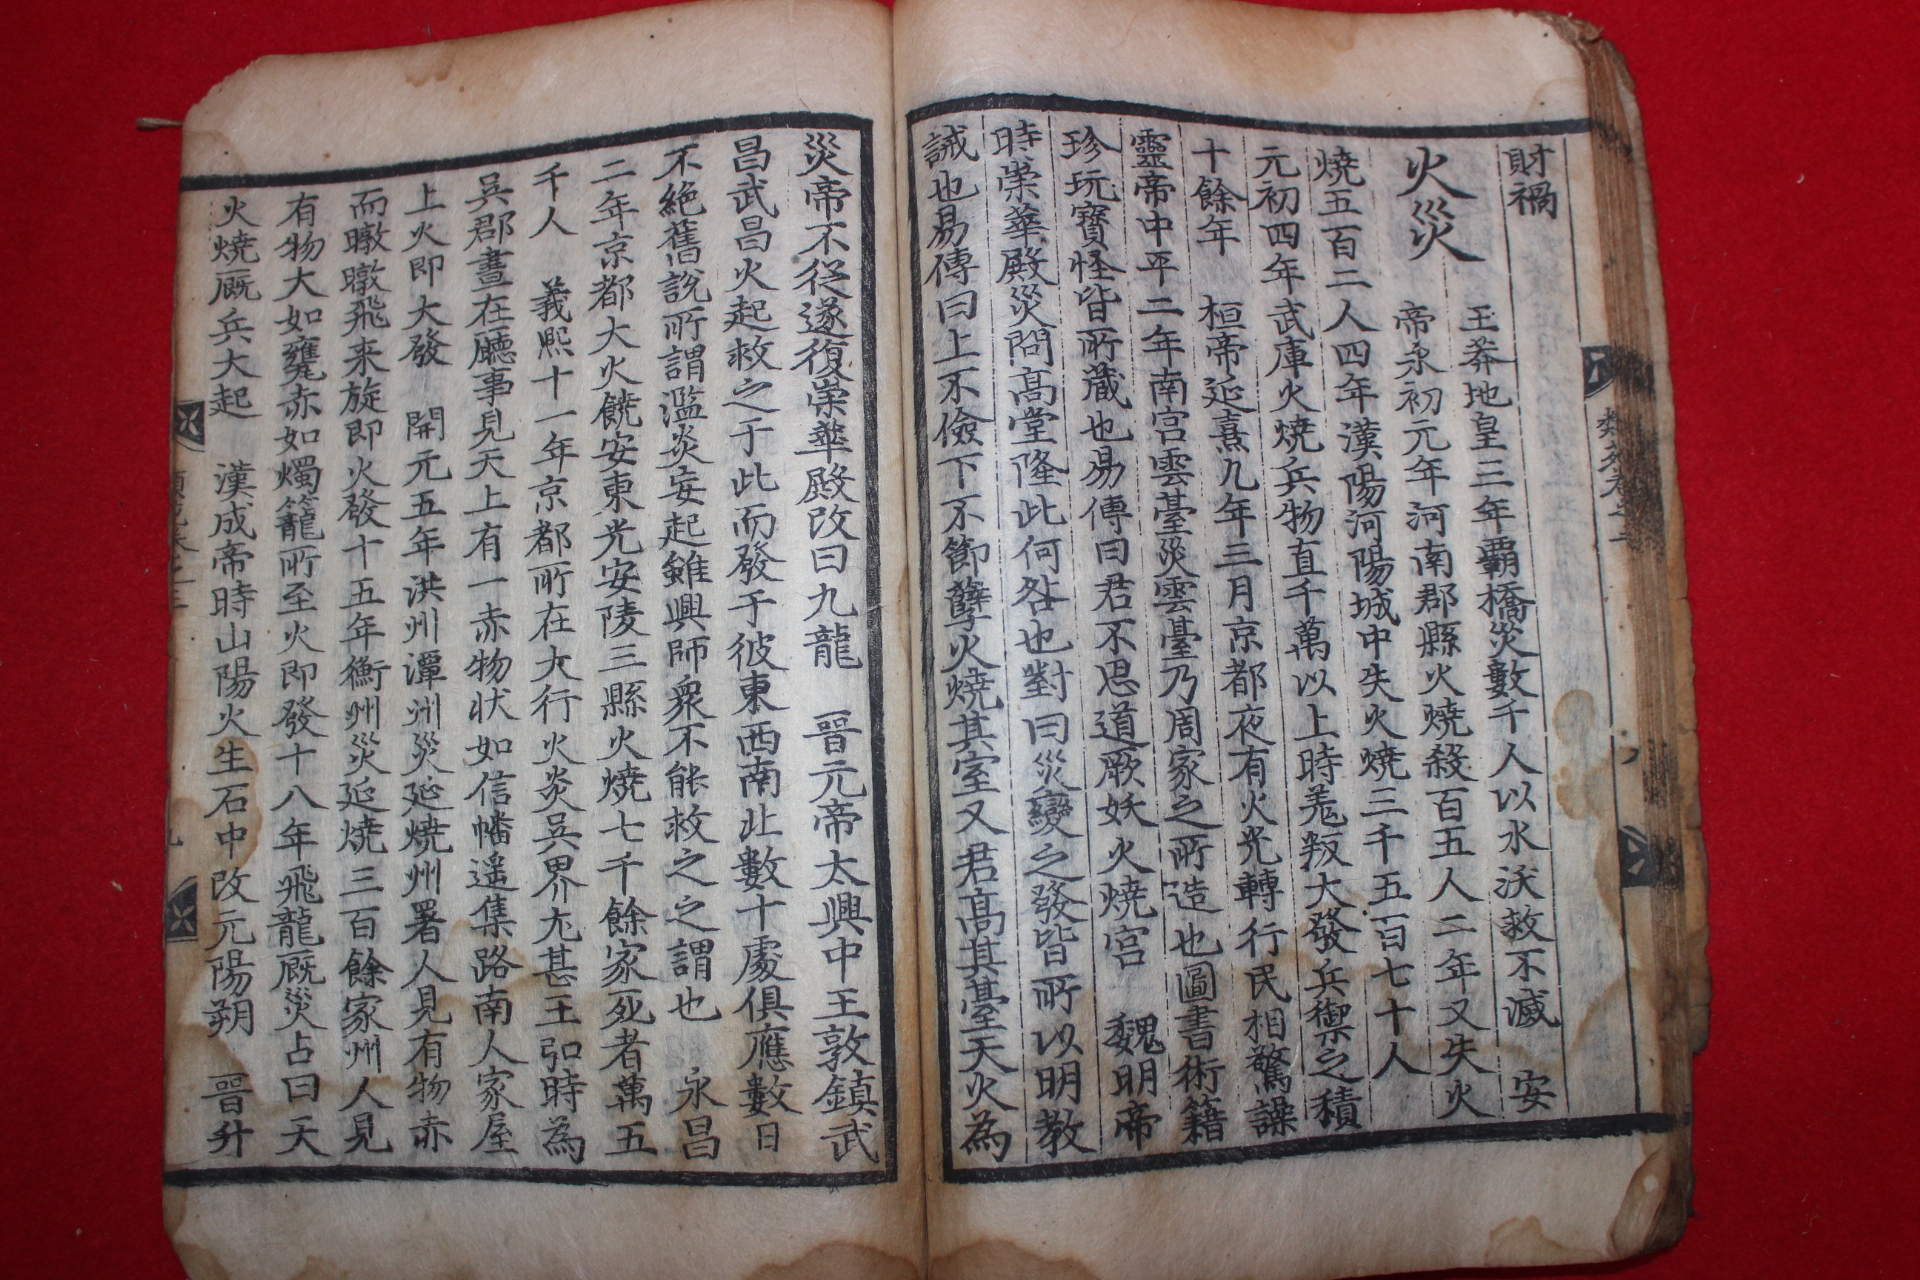 財禍
火災
王莽地皇三年霸橋災數千人以水沃救不滅　安
帝永初元年河南郡縣火燒殺百五人二年又失火
燒五百二人四年漢陽河陽城中失火燒三千五百七十人
元初四年武庫火燒兵物直千萬以上時羌叛大發兵禦之積
十餘年　桓帝延熹九年三月京都夜有火光轉行民相驚譟
靈帝中平二年南宮雲臺災雲臺乃周家之所造也圖書術籍
珍玩寶怪皆所藏也易傳曰君不思道厥妖火燒宮　魏明帝
時崇華殿災問高堂隆此何咎也對曰災變之發皆所以明教
誡也易傳曰上不儉下不節孽火燒其室又君高其臺天火為
災帝不從遂復崇華殿改曰九龍　晉元帝太興中王敦鎮武
昌武昌火起救之于此而發于彼東西南北數十處俱應數日
不絕舊說所謂濫炎妄起雖興師衆不能救之之謂也　永昌
二年京都大火饒安東光安陵三縣火燒七千餘家死者萬五
千人　義熙十一年京都所在大行火災吳界尤甚王弘時為
吳郡晝在廳事見天上有一赤物狀如信幡遥集路南人家屋
上火即大發　開元五年洪州潭州災延燒州署人見有物赤
而暾暾飛来旋即火發十五年衡州災延燒三百餘家州人見
有物大如甕赤如燭籠所至火即發十八年飛龍厩災占曰天
火燒厩兵大起　漢成帝時山陽火生石中改元陽朔　晉升